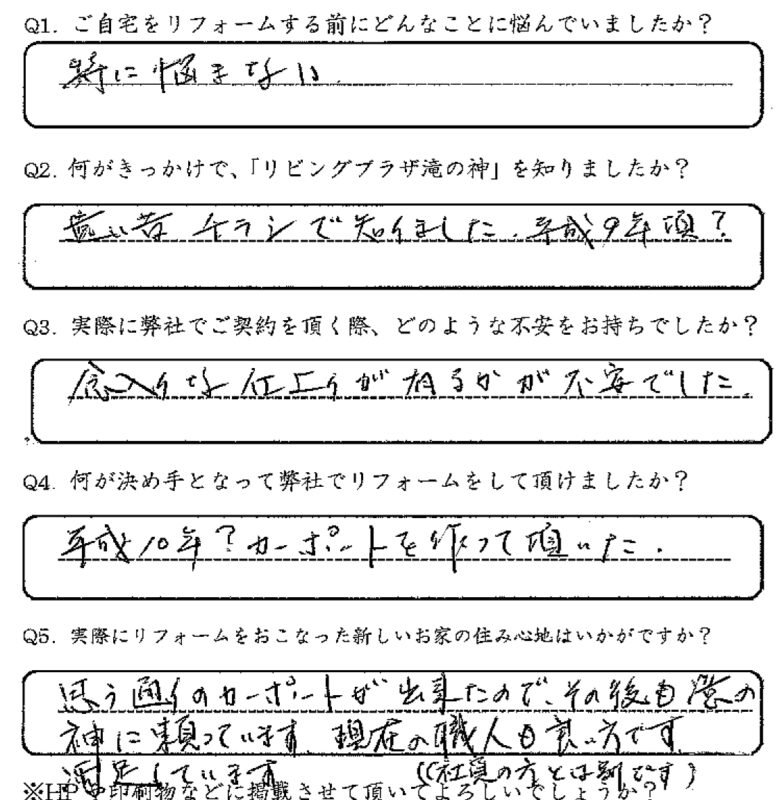 Q1. ご自宅をリフォームする前にどんなことに悩んでいましたか？
特に悩まない
Q2. 何がきっかけで、「リビングプラザ滝の神」を知りましたか？
チラシで知りました。平成9年頃？
Q3. 実際に弊社でご契約を頂く際、どのような不安をお持ちでしたか？
念入りな仕上りが有るかが不安でした。
Q4. 何が決め手となって弊社でリフォームをして頂けましたか？
平成10年？カーポートを作って頂いた。
Q5. 実際にリフォームをおこなった新しいお家の住み心地はいかがですか？
思う通りのカーポートが出来たので、その後も滝の
神に頼っています。現在の職人も良い方です。
満足しています（（社員の方とは別です）
※HPや印刷物などに掲載させて頂いてよろしいでしょうか？